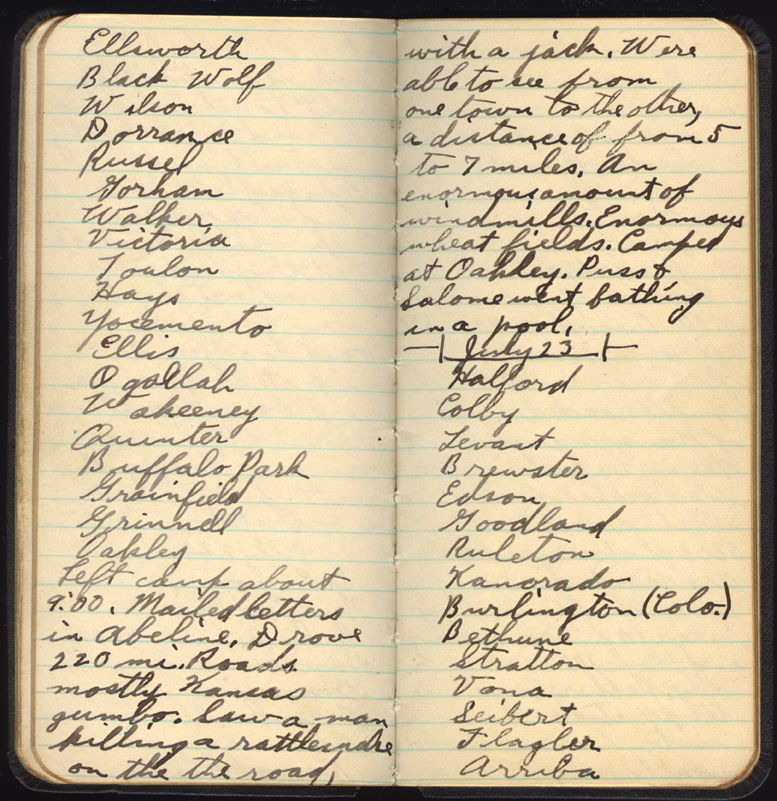 Ellsworth
Black Wolf
Wilson
Dorrance
Russel
Gorham
Walker
Victoria
Toulon
Hays
Yocemento
Ellis
Ogallah
Wakeeney
Quinter
Buffalo Park
Grainfield
Grinnell
Oakley
Left camp about
9:00. Mailed letters
in Abeline. Drove
220 mi. Roads
mostly Kansas
gumbo. Saw a man
killing a rattlesnake
on the the road,
with a jack. Were
able to see from
one town to the other,
a distance of from 5
to 7 miles. An
enormous amount of
windmills. Enormous
wheat fields. Camped
at Oakley. Puss &
Salome went bathing
in a pool.
July 23
Halford
Colby
Levant
Brewster
Edson
Goodland
Ruleton
Kanorado
Burlington (Colo.)
Bethune
Stratton
Vona
Seibert
Flagler
Arriba